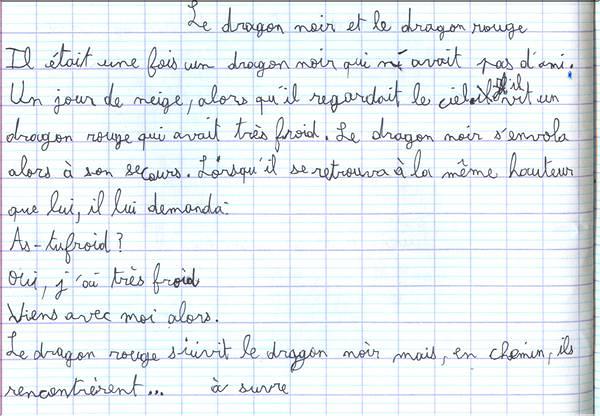 Le dragon noir et le dragon rouge
Il était une fois un dragon noir qui n'avait pas d'ami.
Un jour de neige, alors qu'il regardait le ciel il vit un
dragon rouge qui avait très froid. Le dragon noir s'envola
alors à son secours. Lorsqu'il se retrouva à la même hauteur
que lui, il lui demanda:
As-tu froid ?
Oui, j'ai très froid
Viens avec moi alors.
Le dragon rouge suivit le dragon noir mais, en chemin, ils
rencontrèrent... à suvre